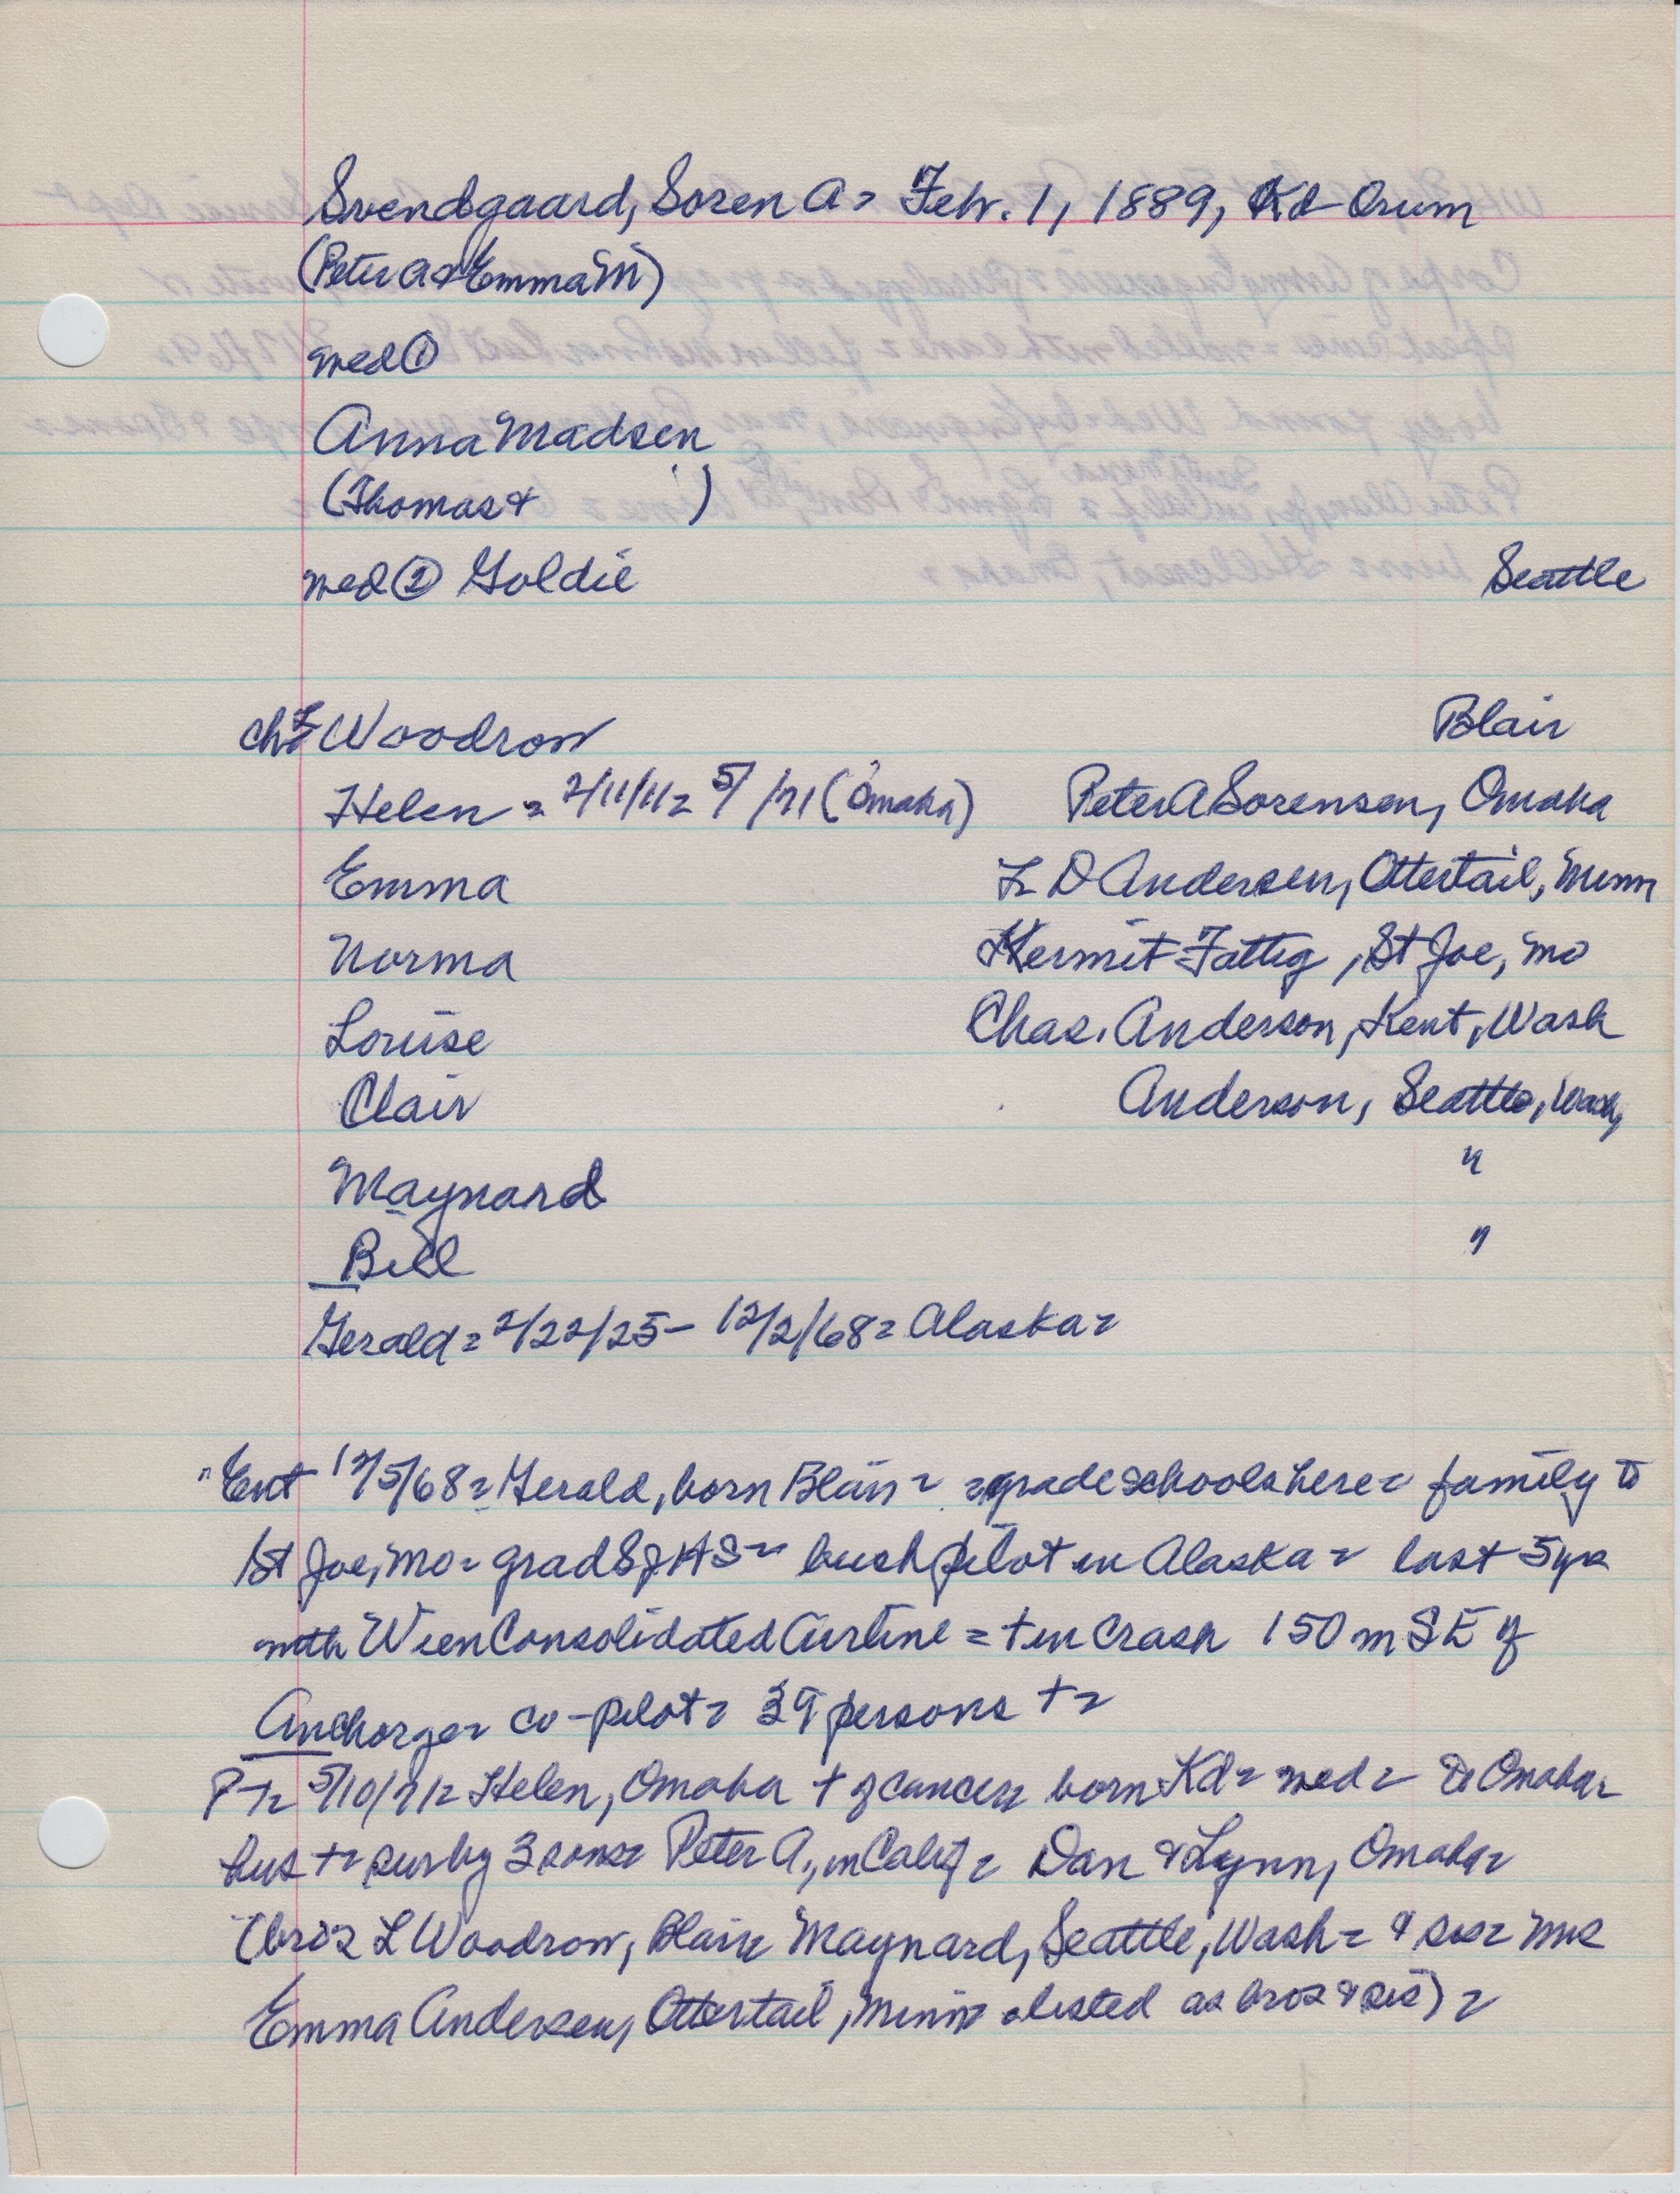 Svendgaard, Soren A = Febr. 1, 1889, Kd - Orum
(Peter A & Emma M)
med ①
Anna Madsen
(Thomas & )
med ② Goldie Seattle
ch: L Woodrow Blair
Helen = 2/11/11 = 5/ /71 (Omaha) Peter A Sorensen, Omaha
Emma L D Andersen, Ottertail, Minn
Norma Kermit Fattig, St Joe, Mo
Louise Chas. Anderson, Kent, Wash
Clair Anderson, Seattle, Wash,
Maynard "
Bill "
Gerald = 2/22/25 - 12/2/68 = Alaska =
"Ent 12/5/68 = Gerald, born Blair = = grade schools here = family to
St Joe, Mo = grad of HS = bush pilot in Alaska = last 5 yrs
with Wien Consolidated Airline = + in crash 150 m SE of
Anchorge = co-pilot = 39 persons + =
P-T = 5/10/71 = Helen, Omaha + of cancer = born Kd = med = to Omaha =
hus + = sur by 3 sons = Peter A., in Calif = Dan & Lynn, Omaha =
(bros L Woodrow, Blair = Maynard, Seattle, Wash = & sis = Mrs
Emma Andersen, Ottertail, Minn = listed as bros & sis) =